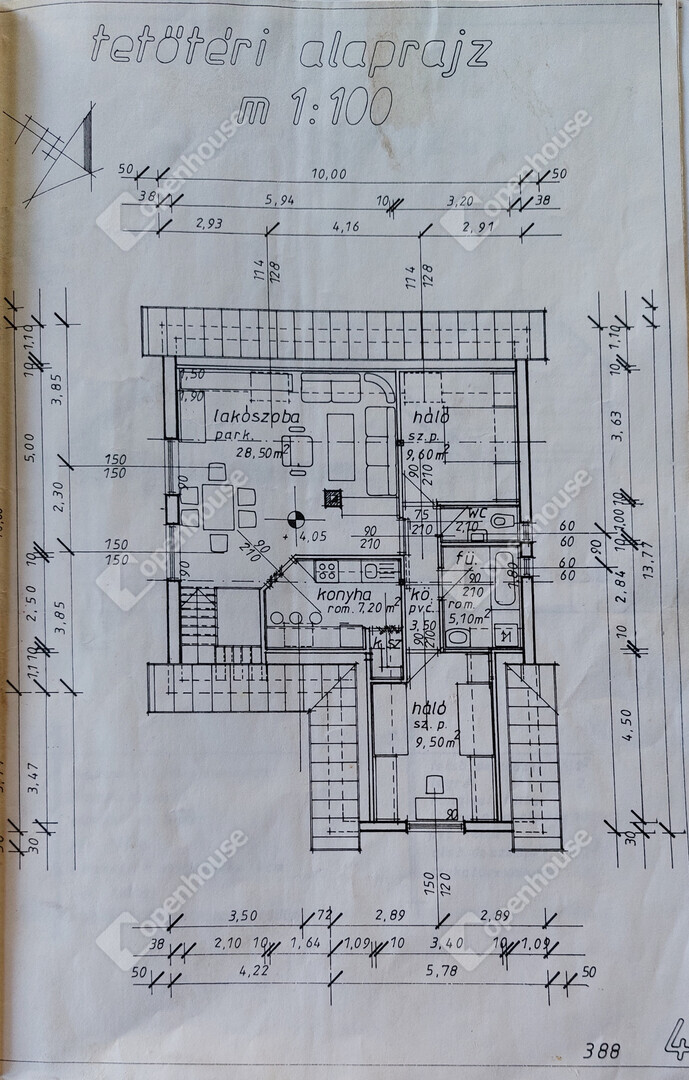 tetőtéri alaprajz
m 1:100
50 10,00 50
38 5,94 10 3,20 38
2,93 4,16 2,91
114
128
114
128
1,50
1,90
lakószoba
park.
28,50 m²
háló
sz.p.
9,60 m²
90
210
WC
2,10
75
210
+ 4,05
90
210
90
210
konyha
rom. 7,20 m²
kö.
pvc.
3,50
90
210
fü.
90
210
rom.
5,10 m²
1,80
k. sz
háló
sz. p.
9,50 m²
90
150
120
150
150
150
150
90
90
60
60
60
60
90
1,10
10
3,85
5,00
2,30
10
2,50
3,85
10
1,1
3,47
30
1,10
10
3,63
10
1,00
10
2,84
13,77
10
4,50
30
3,50 72 2,89 2,89
38 2,10 10 1,64 1,09 10 3,40 10 1,09
50 4,22 5,78 50
388
4
openhouse
openhouse
openhouse
openhouse
openhouse
openhouse
openhouse
openhouse
openhouse
openhouse